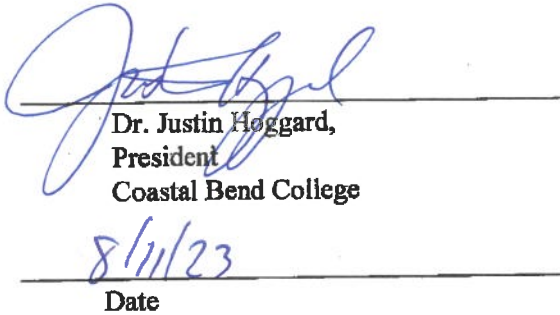 Dr. Justin Hoggard,
President
Coastal Bend College
8/11/23
Date